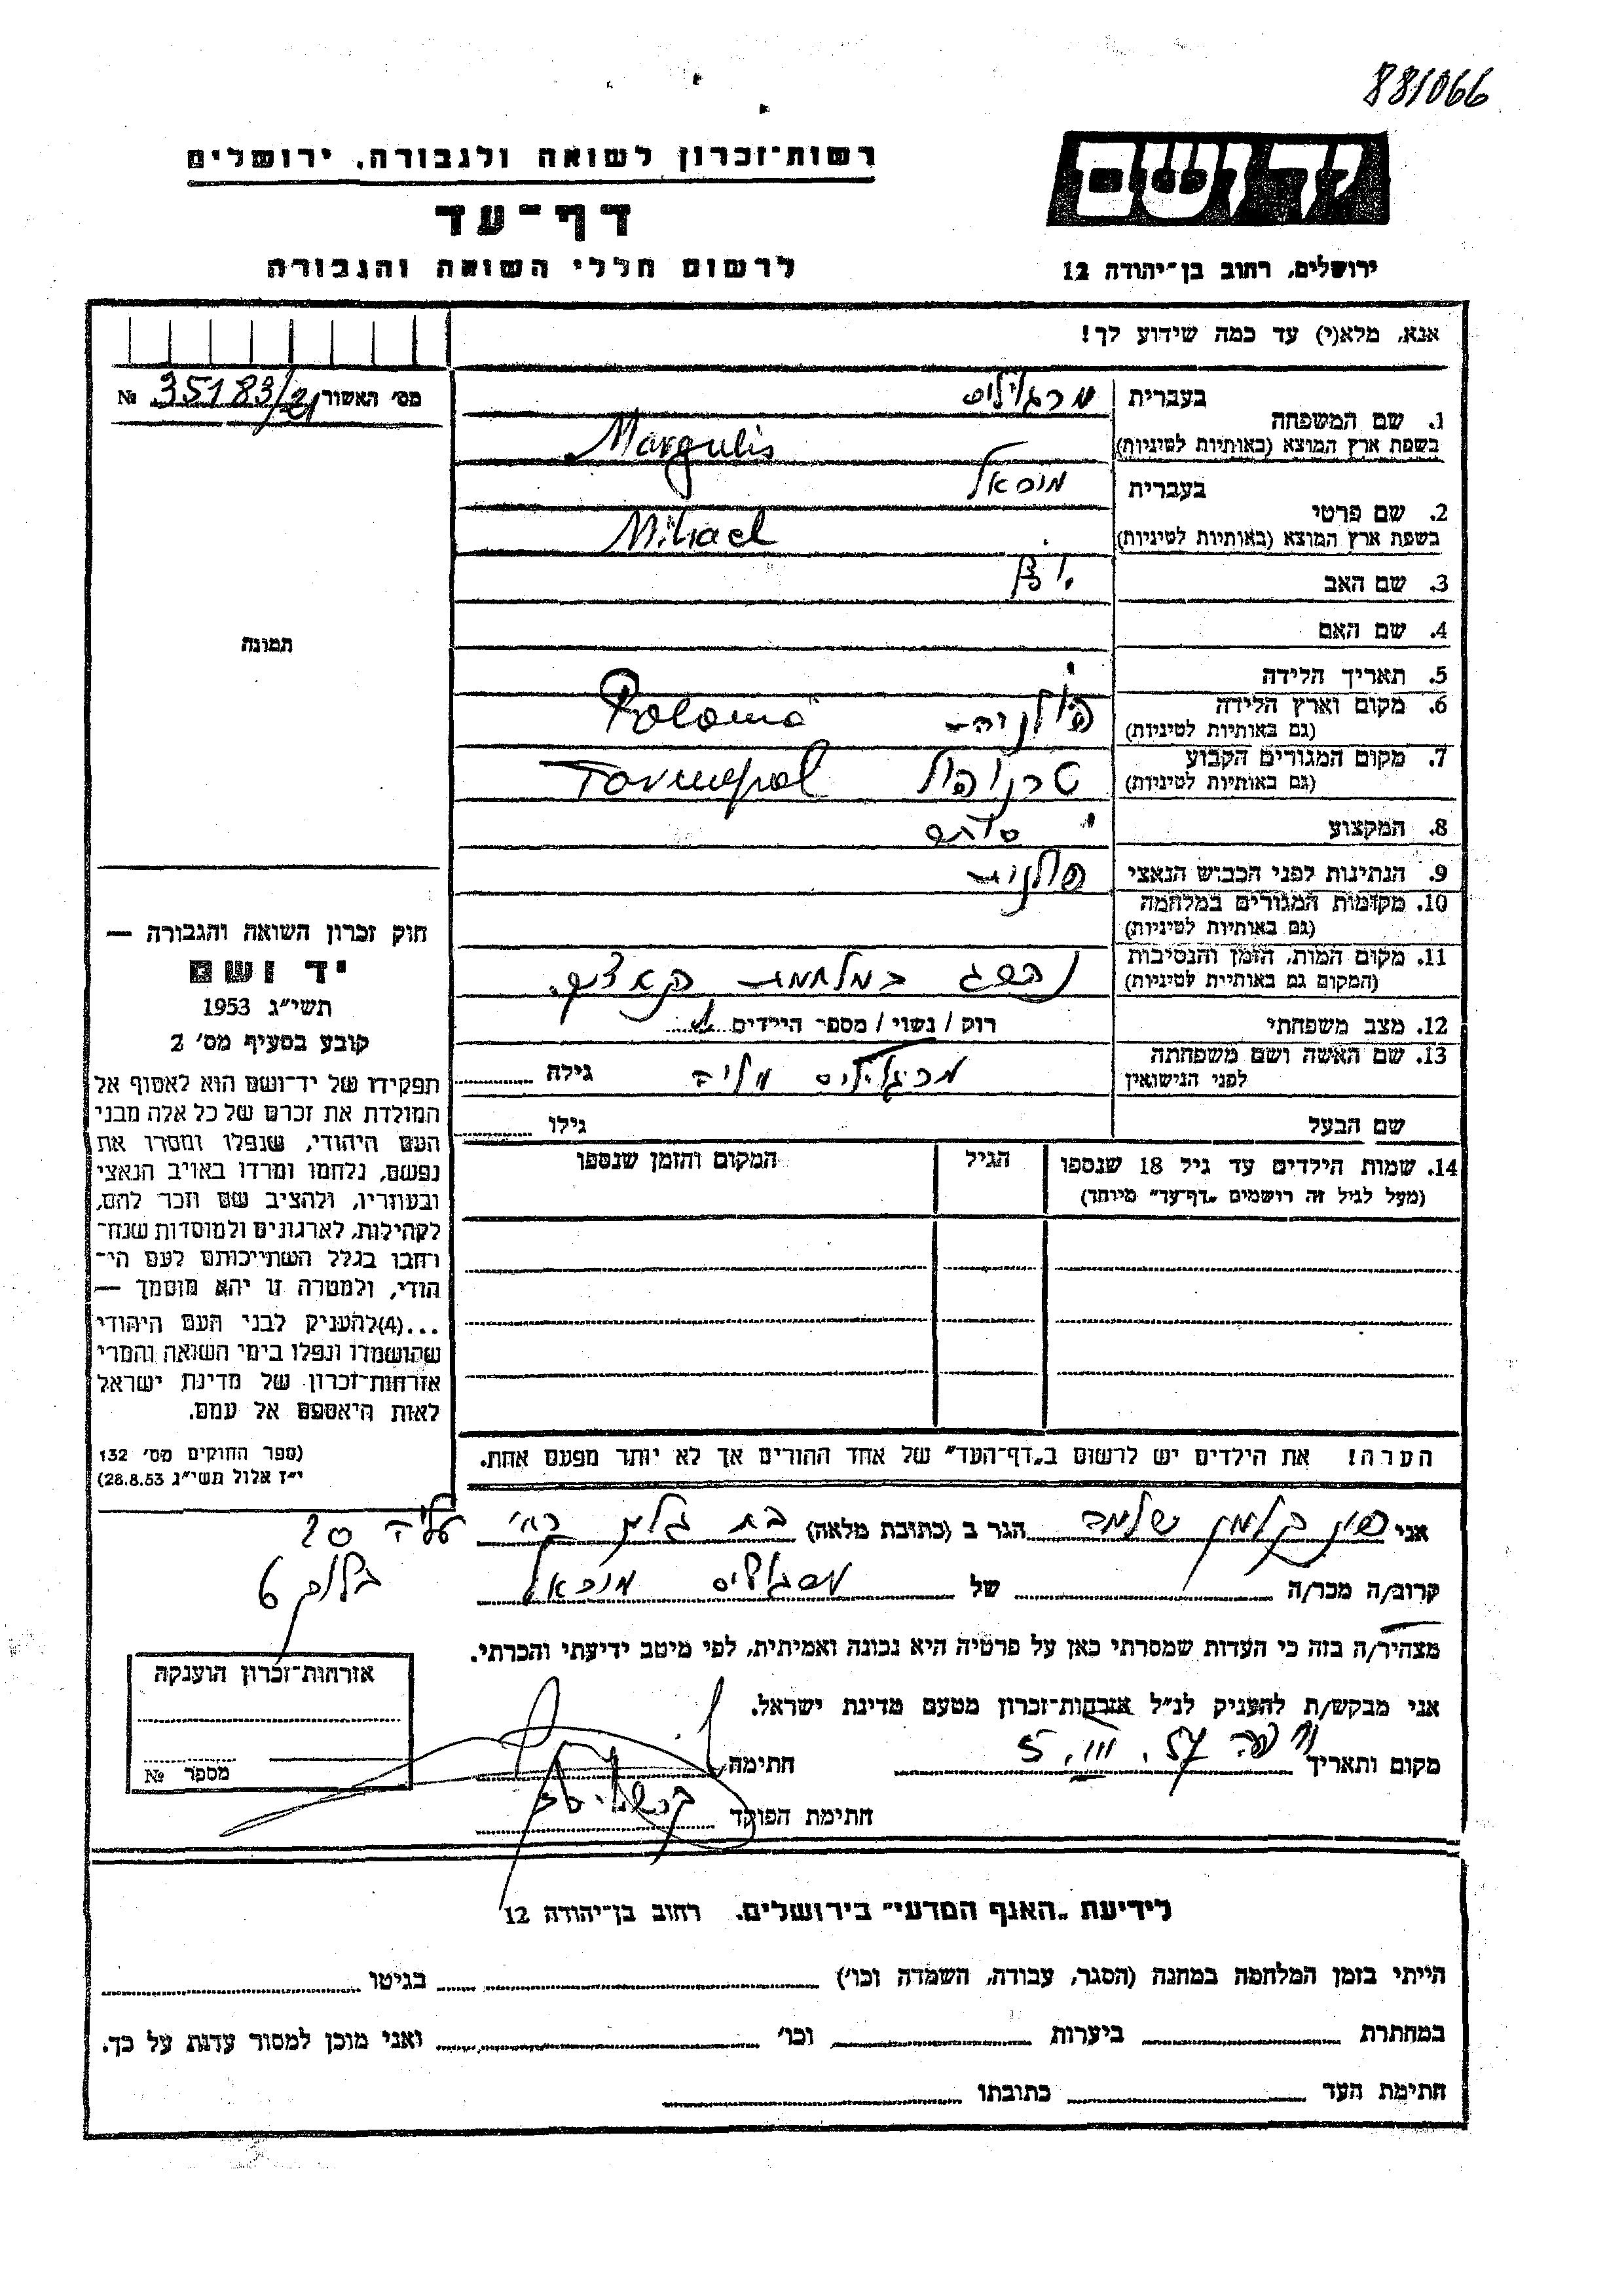 881066
יד ושם
רשות־זכרון לשואה ולגבורה, ירושלים
דף־עד
לרשום חללי השואה והגבורה
ירושלים, רחוב בן־יהודה 12
אנא, מלא(י) עד כמה שידוע לך!
מס׳ האשור 35183/21 №
1. שם המשפחה
בעברית מרגוליס
בשפת ארץ המוצא (באותיות לטיניות) Margulis
2. שם פרטי
בעברית מיכאל
בשפת ארץ המוצא (באותיות לטיניות) Mihael
3. שם האב
4. שם האם
5. תאריך הלידה
6. מקום וארץ הלידה
(גם באותיות לטיניות) פולניה
7. מקום המגורים הקבוע
(גם באותיות לטיניות) טרנופול Tornopol
8. המקצוע סוחר
9. הנתינות לפני הכבוש הנאצי פולנית
10. מקומות המגורים במלחמה
(גם באותיות לטיניות)
11. מקום המות, הזמן והנסיבות
(המקום גם באותיות לטיניות) נהרג במלחמת
12. מצב משפחתי רוק / נשוי / מספר הילדים
13. שם האשה ושם משפחתה
לפני הנישואין מרגוליס גילה
שם הבעל גילו
14. שמות הילדים עד גיל 18 שנספו
(מעל לגיל זה רושמים „דף־עד” מיוחד)
הגיל
המקום והזמן שנספו
תמונה
חוק זכרון השואה והגבורה —
יד ושם
תשי״ג 1953
קובע בסעיף מס׳ 2
תפקידו של יד־ושם הוא לאסוף אל
המולדת את זכרם של כל אלה מבני
העם היהודי, שנפלו ומסרו את
נפשם, נלחמו ומרדו באויב הנאצי
ובעוזריו, ולהציב שם וזכר להם,
לקהילות, לארגונים ולמוסדות שנח־
רחבו בגלל השתייכותם לעם הי־
הודי, ולמטרה זו יהא מוסמך —
...(4)להעניק לבני העם היהודי
שהושמדו ונפלו בימי השואה והמרי
אזרחות־זכרון של מדינת ישראל
לאות היאספם אל עמם.
(ספר החוקים מס׳ 132
י״ז אלול תשי״ג 28.8.53)
הערה! את הילדים יש לרשום ב„דף־העד” של אחד ההורים אך לא יותר מפעם אחת.
אני שלמה הגר ב (כתובת מלאה) בת גלים 20
6
קרוב/ה מכר/ה של מרגוליס מיכאל
מצהיר/ה בזה כי העדות שמסרתי כאן על פרטיה היא נכונה ואמיתית, לפי מיטב ידיעתי והכרתי.
אני מבקש/ת להעניק לנ״ל אזרחות־זכרון מטעם מדינת ישראל.
מקום ותאריך חיפה 5. III. 57 חתימה
חתימת הפוקד
אזרחות־זכרון הוענקה
מספר №
לידיעת „האגף המדעי” בירושלים. רחוב בן־יהודה 12
הייתי בזמן המלחמה במחנה (הסגר, עבודה, השמדה וכו׳) בגיטו
במחתרת ביערות וכו׳ ואני מוכן למסור עדות על כך.
חתימת העד כתובתו